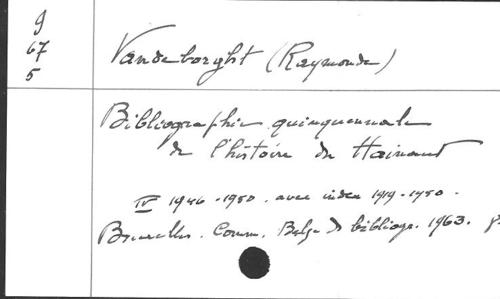 9
67
5
Vandeborght (Raymonde)
Bibliographie quinquennale
de l'histoire du Hainaut
IV 1946-1950. avec index 1919-1950.
Bruxelles. Comm. Belge de bibliogr. 1963.